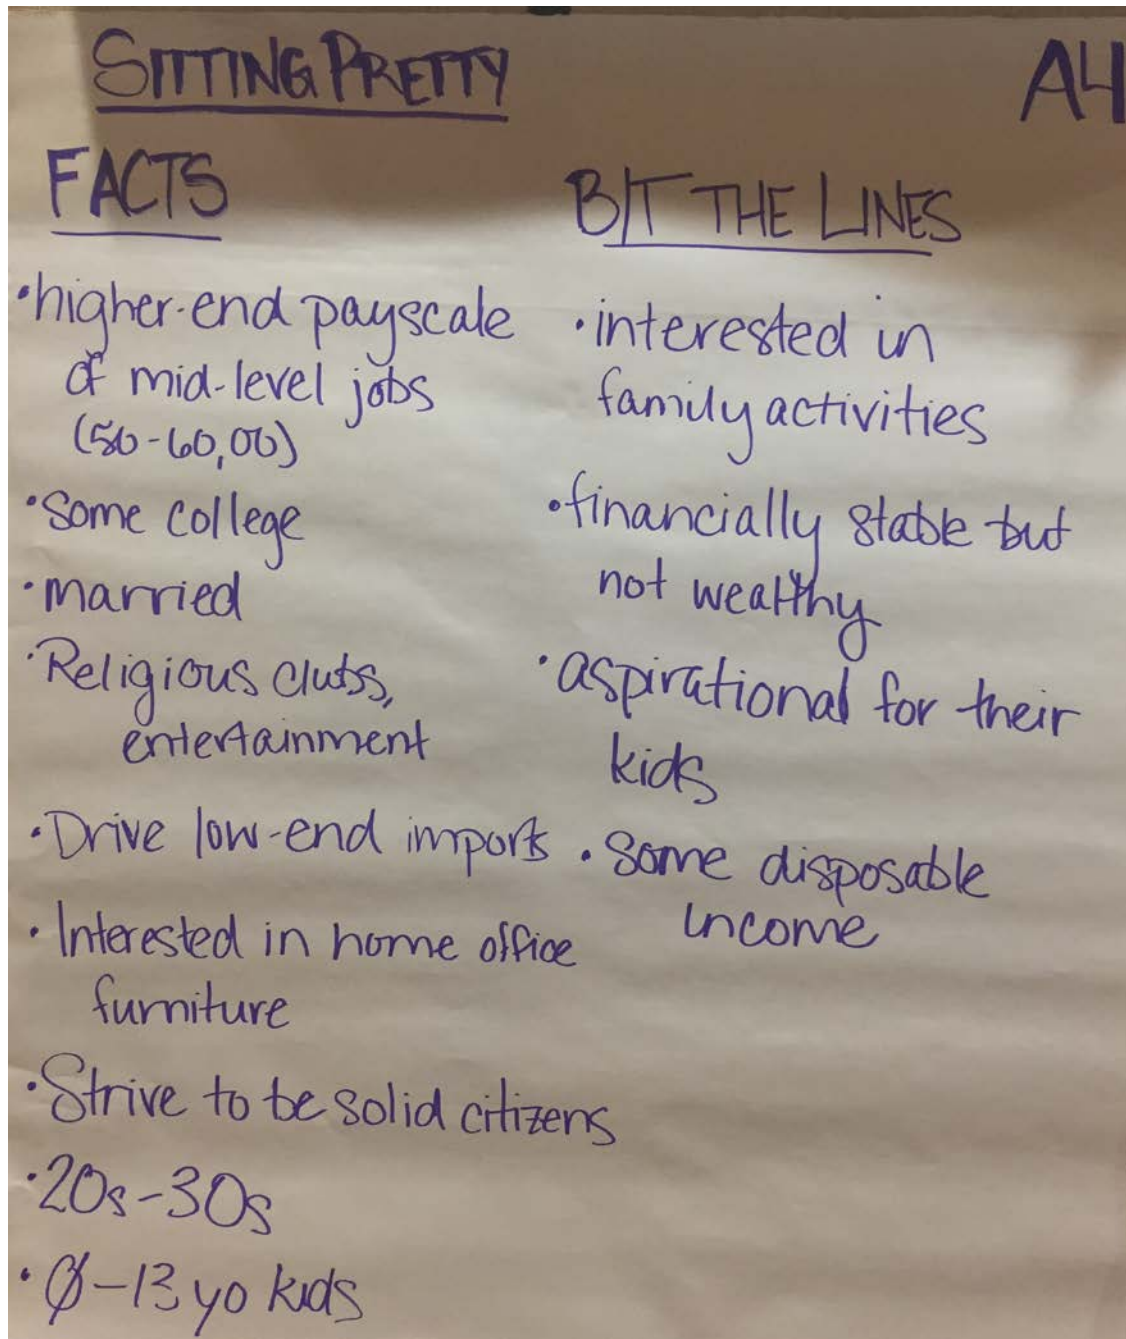 SITTING PRETTY
A4
FACTS
•higher-end payscale
of mid-level jobs
(50-60,00)
•Some college
•married
•Religious clubs,
entertainment
•Drive low-end imports
•Interested in home office
furniture
•Strive to be solid citizens
•20s-30s
•Ø-13 yo kids
B/T THE LINES
•interested in
family activities
•financially stable but
not wealthy
•aspirational for their
kids
•Some disposable
income